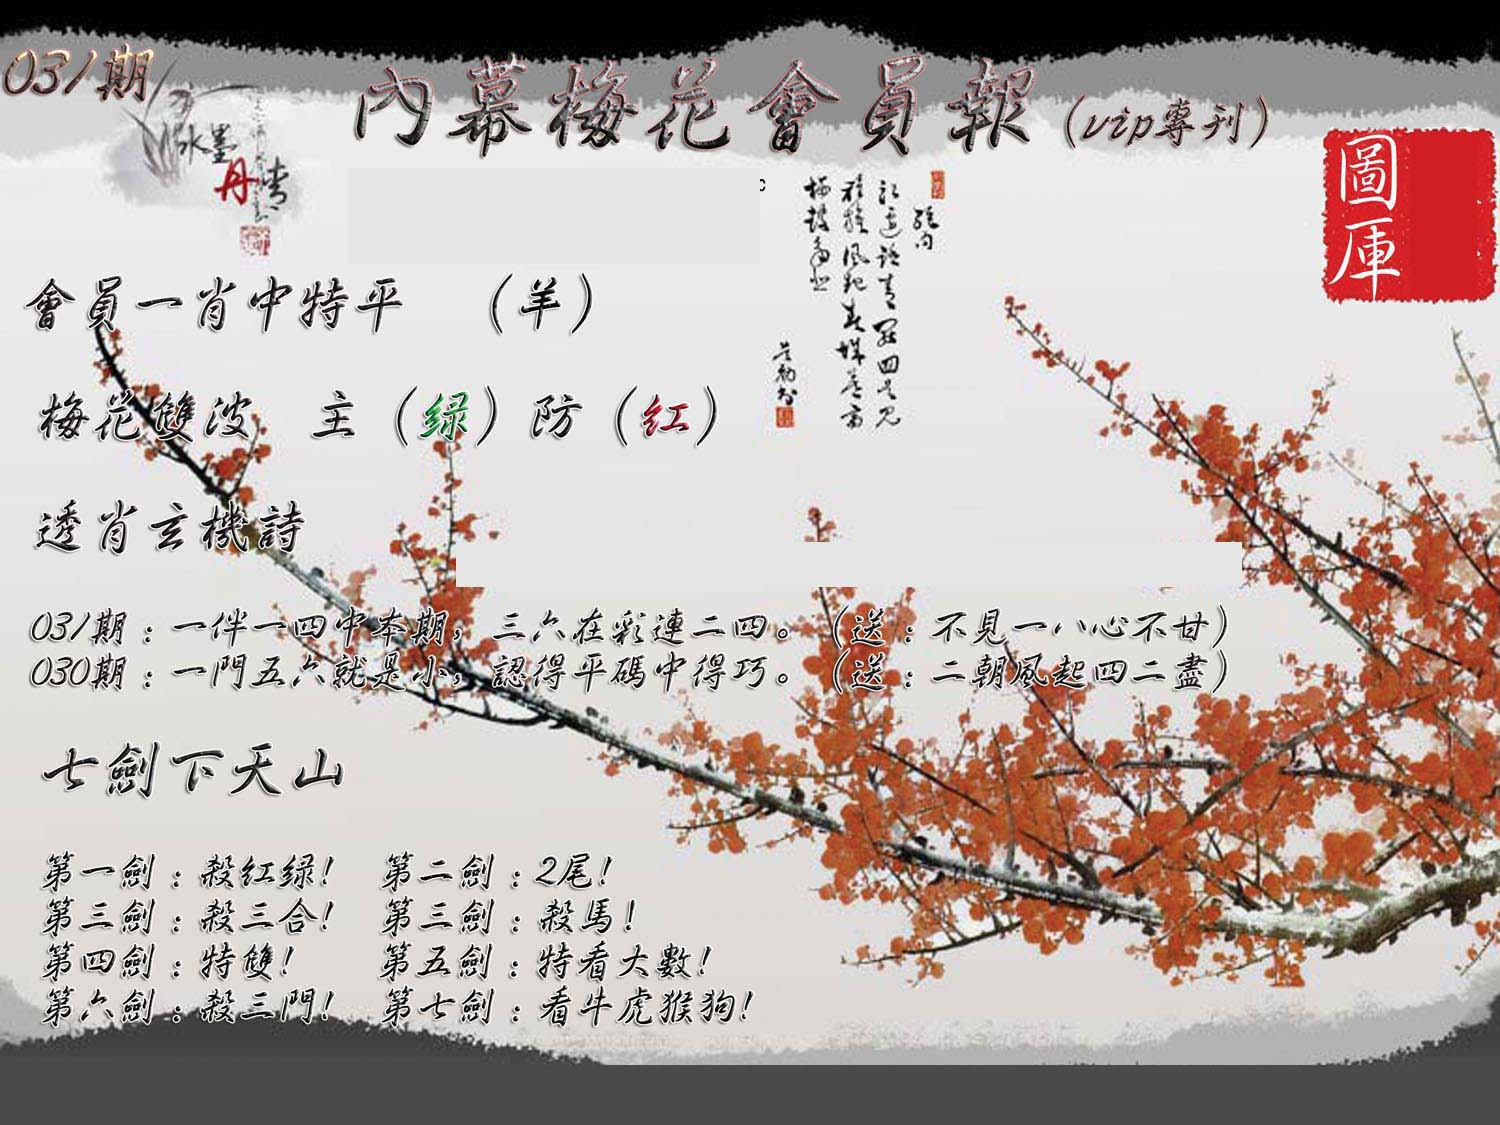 031期
內幕梅花會員報（vip專刊）
水墨
丹青
圖庫
會員一肖中特平　（羊）
梅花雙波　主（绿）防（红）
透肖玄機詩
031期：一伴一四中本期，三六在彩連二四。（送：不見一八心不甘）
030期：一門五六就是小，認得平碼中得巧。（送：二朝風起四二盡）
七劍下天山
第一劍：殺红绿!　第二劍：2尾!
第三劍：殺三合!　第三劍：殺馬!
第四劍：特雙!　第五劍：特看大數!
第六劍：殺三門!　第七劍：看牛虎猴狗!